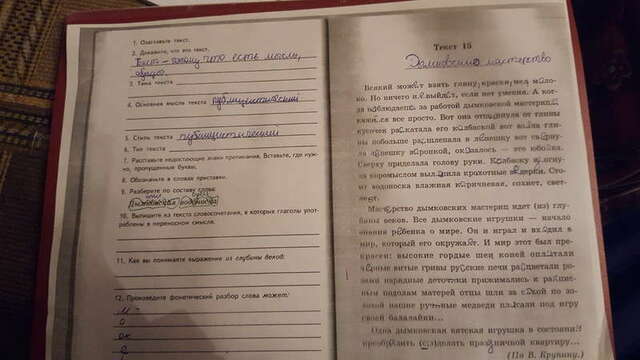 1. Озаглавьте текст.
2. Докажите, что это текст.
Текст – потому что есть мысль,
3. Тема текста
4. Основная мысль текста
5. Стиль текста
6. Тип текста
7. Расставьте недостающие знаки препинания. Вставьте, где нуж-
но, пропущенные буквы.
8. Обозначьте в словах приставки.
9. Разберите по составу слова:
Дымковская водоноска
10. Выпишите из текста словосочетания, в которых глаголы упот-
реблены в переносном смысле.
11. Как вы понимаете выражение из глубины веков?
12. Произведите фонетический разбор слова может:
М
о
Текст 15
Дымковское мастерство
Всякий может взять глину, краски, мел, моло-
ко. Но ничего не выйдет, если нет умения. А ког-
да наблюдаете за работой дымковской мастерицы
кажется все просто. Вот она отщипнула от глины
кусочек раскатала его колбаской вот взяла гли-
ны побольше расшлепала в лепешку вот сверну-
ла лепешку воронкой, оказалось — это юбочка.
Сверху приделала голову руки. Колбаску изогну-
ла коромыслом вылепила крохотные ведерки. Сто-
ит водоноска влажная коричневая, сохнет, свет-
леет.
Мастерство дымковских мастериц идет (из) глу-
бины веков. Все дымковские игрушки — начало
знания ребенка о мире. Он и играл и входил в
мир, который его окружает. И мир этот был пре-
красен: высокие гордые шеи коней оплетали
витые гривы русские печи расцветали ро-
зами нарядные деточки прижимались к распис-
ным подолам матерей отцы шли за сохой по зо-
лотой пашне ручные медведи плясали под игру
своей балалайки...
Одна дымковская вятская игрушка в состоянии
преобразить (с)делать праздничной квартиру...
(По В. Крупину.)